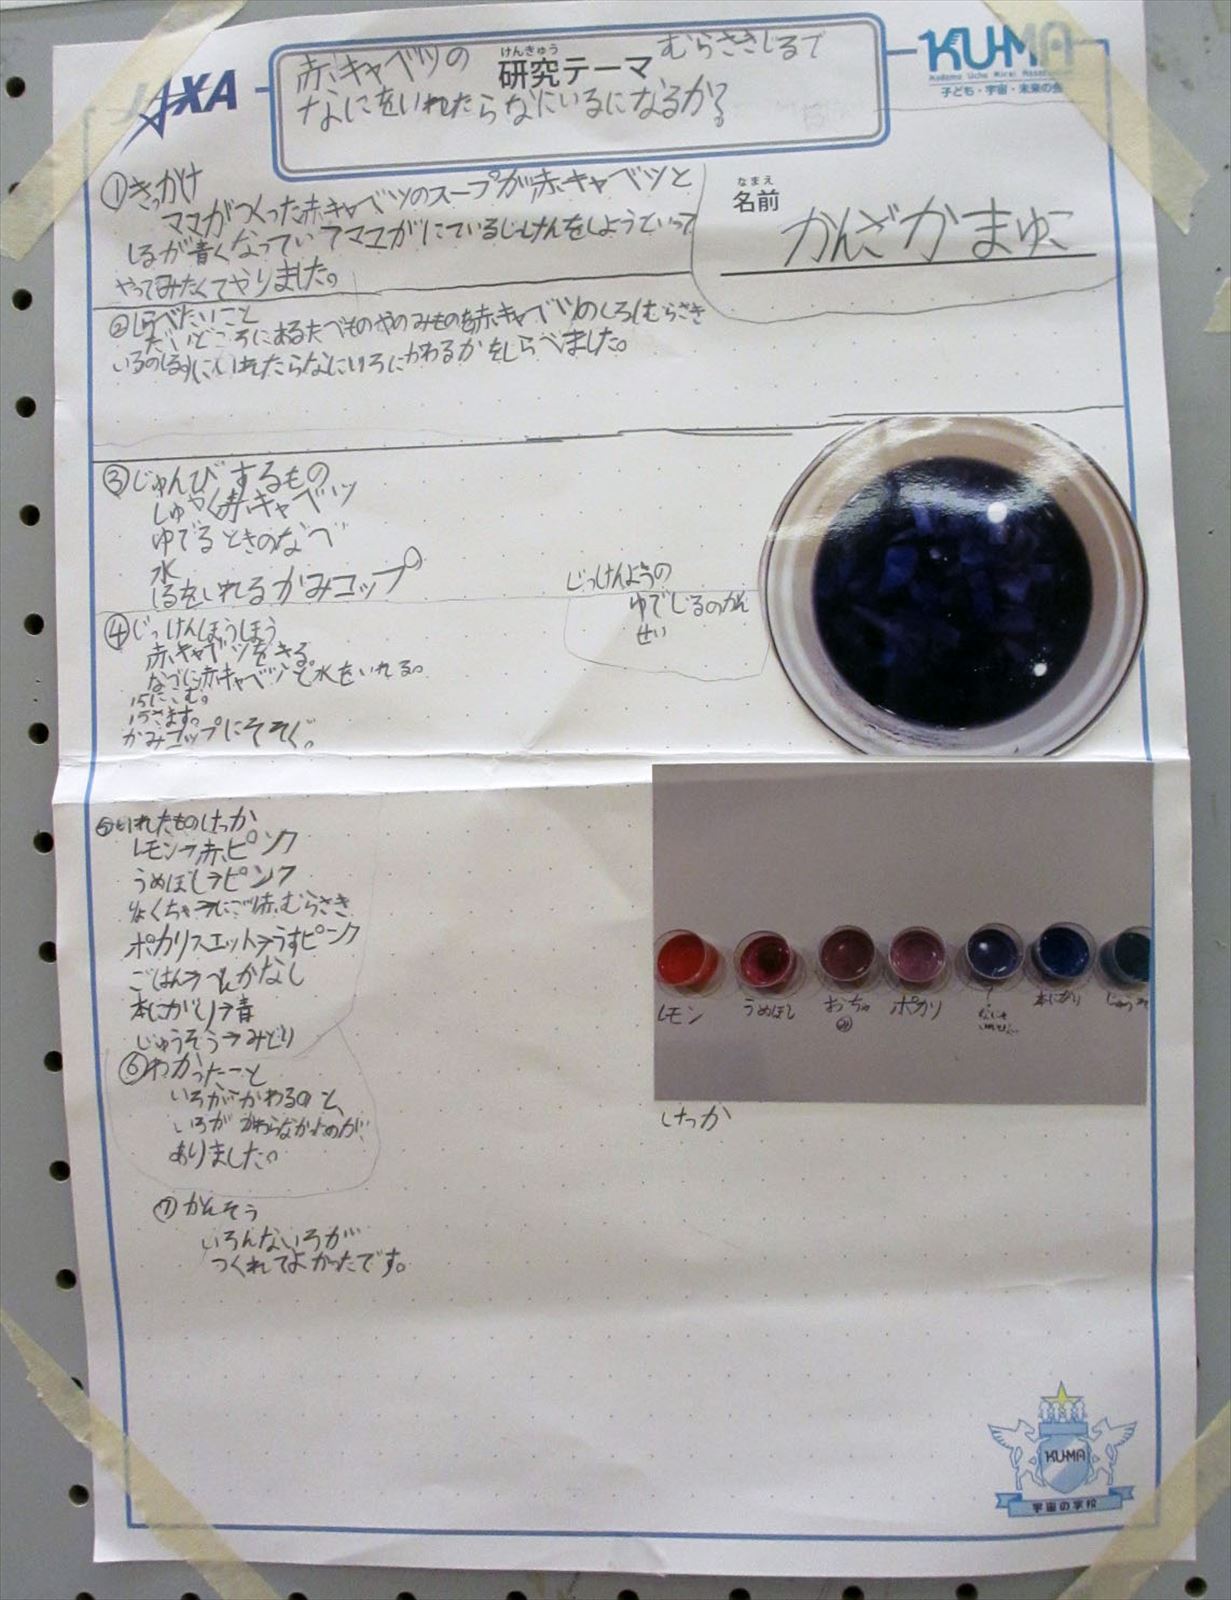 JAXA
KU-MA
Kodomo Uchu Mirai Association
子ども・宇宙・未来の会
けんきゅう
研究テーマ
赤キャベツの むらさきしるで
なにをいれたらなにいろになるか?
なまえ
名前
かんざかまゆこ
①きっかけ
ママがつくった赤キャベツのスープが赤キャベツと
しるが青くなっていてママがにているじっけんをしようといって
やってみたくてやりました。
②しらべたいこと
だいどころにあるたべものやのみものを赤キャベツのしるむらさき
いろのしるにいれたらなにいろにかわるかをしらべました。
③じゅんびするもの
しゅやく赤キャベツ
ゆでるときのなべ
水
しるをいれるかみコップ
じっけんようの
ゆでじるのかん
せい
④じっけんほうほう
赤キャベツをきる
なべに赤キャベツと水をいれる。
15にこむ。
15さます。
かみコップにそそぐ。
⑤いれたものけっか
レモン→赤ピンク
うめぼし→ピンク
りょくちゃ→にごり赤むらさき
ポカリスエット→うすピンク
ごはん→へんかなし
本にがり→青
じゅうそう→みどり
レモン
うめぼし
おちゃ
ポカリ
?
本にがり
じゅうそ
けっか
⑥わかったこと
いろがかわるのと、
いろがかわらなかったのが
ありました。
⑦かんそう
いろんないろが
つくれてよかったです。
KU-MA
宇宙の学校